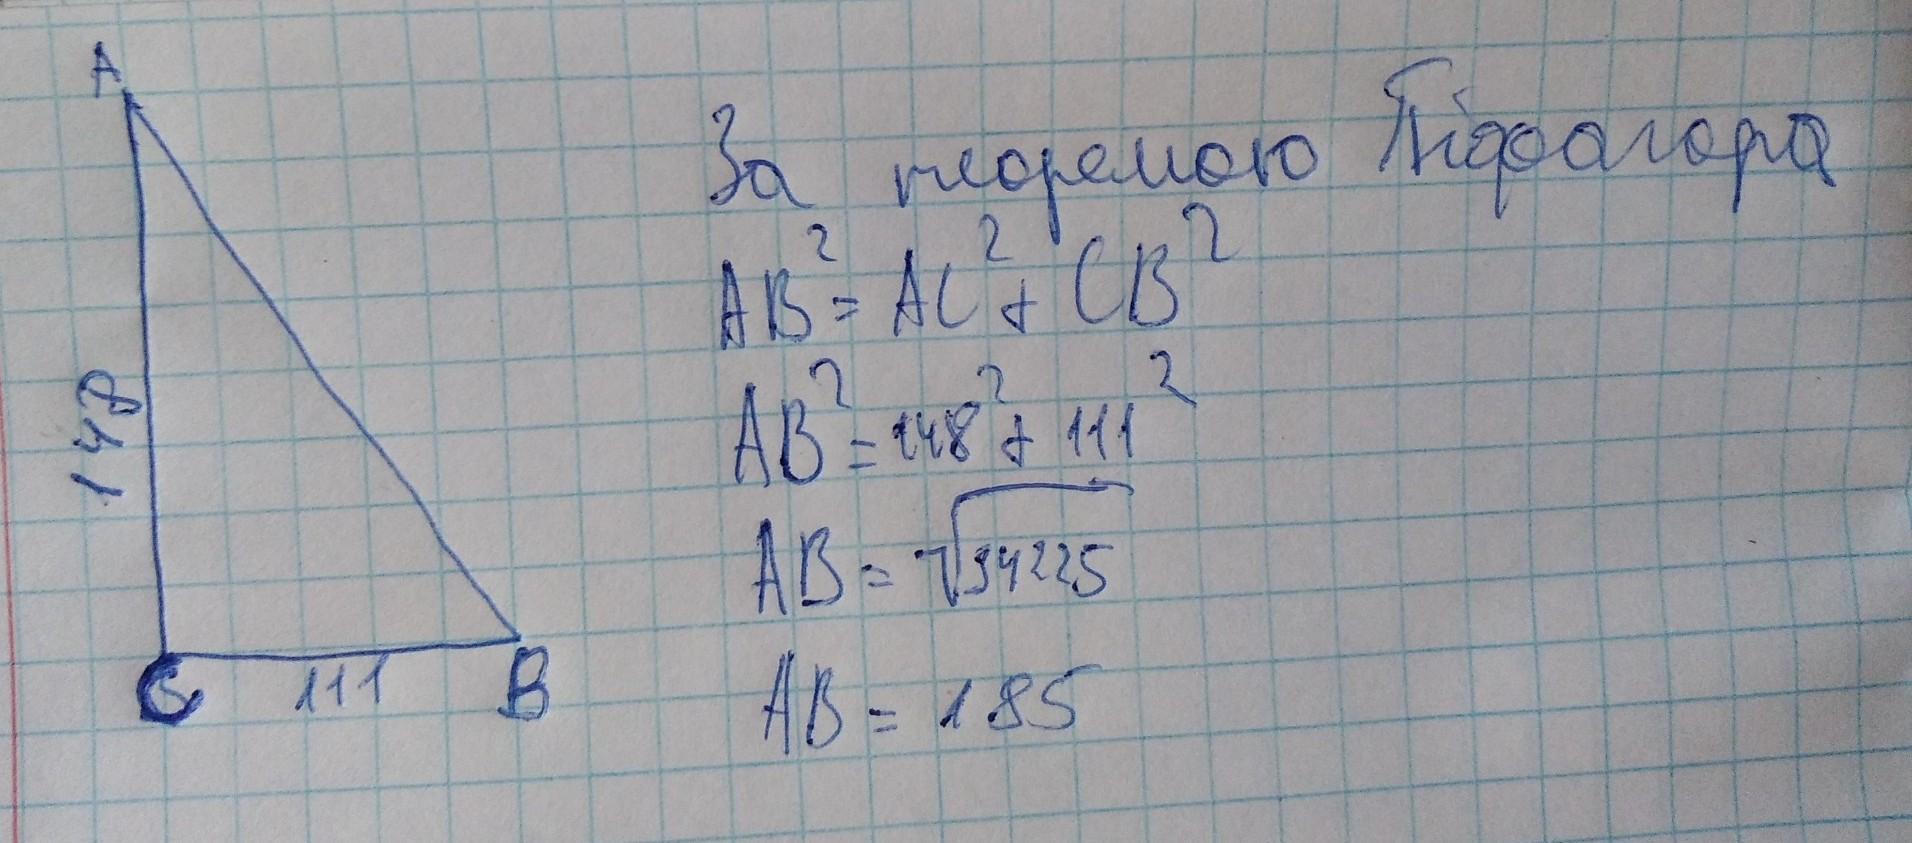 A
148
C 111 B
За теоремою Піфагора
AB² = AC² + CB²
AB² = 148² + 111²
AB = √34225
AB = 185